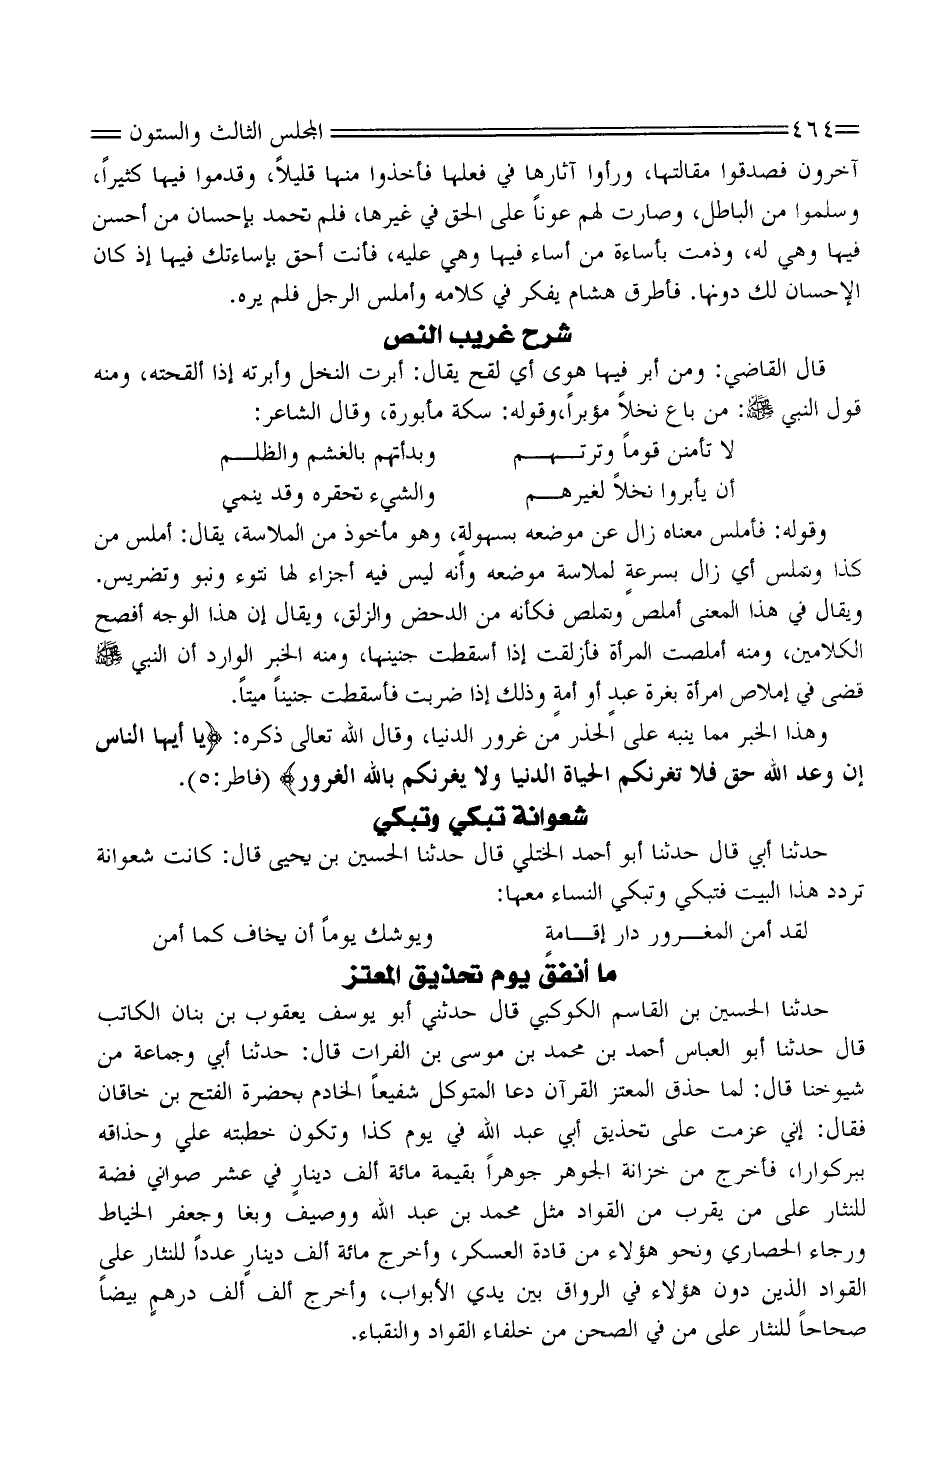 ٤٦٤ المجلس الثالث والستون
آخرون فصدقوا مقالتها، ورأوا آثارها في فعلها فأخذوا منها قليلاً، وقدموا فيها كثيراً،
وسلموا من الباطل، وصارت لهم عوناً على الحق في غيرها، فلم تحمد بإحسان من أحسن
فيها وهي له، وذمت بأساءة من أساء فيها وهي عليه، فأنت أحق بإساءتك فيها إذ كان
الإحسان لك دونها. فأطرق هشام يفكر في كلامه وأملس الرجل فلم يره.
شرح غريب النص
قال القاضي: ومن أبر فيها هوى أي لقح يقال: أبرت النخل وأبرته إذا ألقحته، ومنه
قول النبي ﷺ: من باع نخلاً مؤبراً،وقوله: سكة مأبورة، وقال الشاعر:
لا تأمنن قوماً وترتـهـــم وبدأتهم بالغشم والظلـــم
أن يأبروا نخلاً لغيرهــم والشيء تحقره وقد ينمي
وقوله: فأملس معناه زال عن موضعه بسهولةٍ، وهو مأخوذ من الملاسة، يقال: أملس من
كذا وتملس أي زال بسرعةٍ لملاسة موضعه وأنه ليس فيه أجزاء لها نتوء ونبو وتضريس.
ويقال في هذا المعنى أملص وتملص فكأنه من الدحض والزلق، ويقال إن هذا الوجه أفصح
الكلامين، ومنه أملصت المرأة فأزلقت إذا أسقطت جنينها، ومنه الخبر الوارد أن النبي ﷺ
قضى في إملاص امرأة بغرة عبدٍ أو أمةٍ وذلك إذا ضربت فأسقطت جنيناً ميتاً.
وهذا الخبر مما ينبه على الحذر من غرور الدنيا، وقال الله تعالى ذكره: ﴿يا أيها الناس
إن وعد الله حق فلا تغرنكم الحياة الدنيا ولا يغرنكم بالله الغرور﴾ (فاطر:٥).
شعوانة تبكي وتبكي
حدثنا أبي قال حدثنا أبو أحمد الختلي قال حدثنا الحسين بن يحيى قال: كانت شعوانة
تردد هذا البيت فتبكي وتبكي النساء معها:
لقد أمن المغـــرور دار إقـــامةٍ ويوشك يوماً أن يخاف كما أمن
ما أنفق يوم تحذيق المعتز
حدثنا الحسين بن القاسم الكوكبي قال حدثني أبو يوسف يعقوب بن بنان الكاتب
قال حدثنا أبو العباس أحمد بن محمد بن موسى بن الفرات قال: حدثنا أبي وجماعة من
شيوخنا قال: لما حذق المعتز القرآن دعا المتوكل شفيعاً الخادم بحضرة الفتح بن خاقان
فقال: إني عزمت على تحذيق أبي عبد الله في يوم كذا وتكون خطبته علي وحذاقه
ببركوارا، فأخرج من خزانة الجوهر جوهراً بقيمة مائة ألف دينارٍ في عشر صواني فضة
للنثار على من يقرب من القواد مثل محمد بن عبد الله ووصيف وبغا وجعفر الخياط
ورجاء الحصاري ونحو هؤلاء من قادة العسكر، وأخرج مائة ألف دينارٍ عدداً للنثار على
القواد الذين دون هؤلاء في الرواق بين يدي الأبواب، وأخرج ألف ألف درهمٍ بيضاً
صحاحاً للنثار على من في الصحن من خلفاء القواد والنقباء.